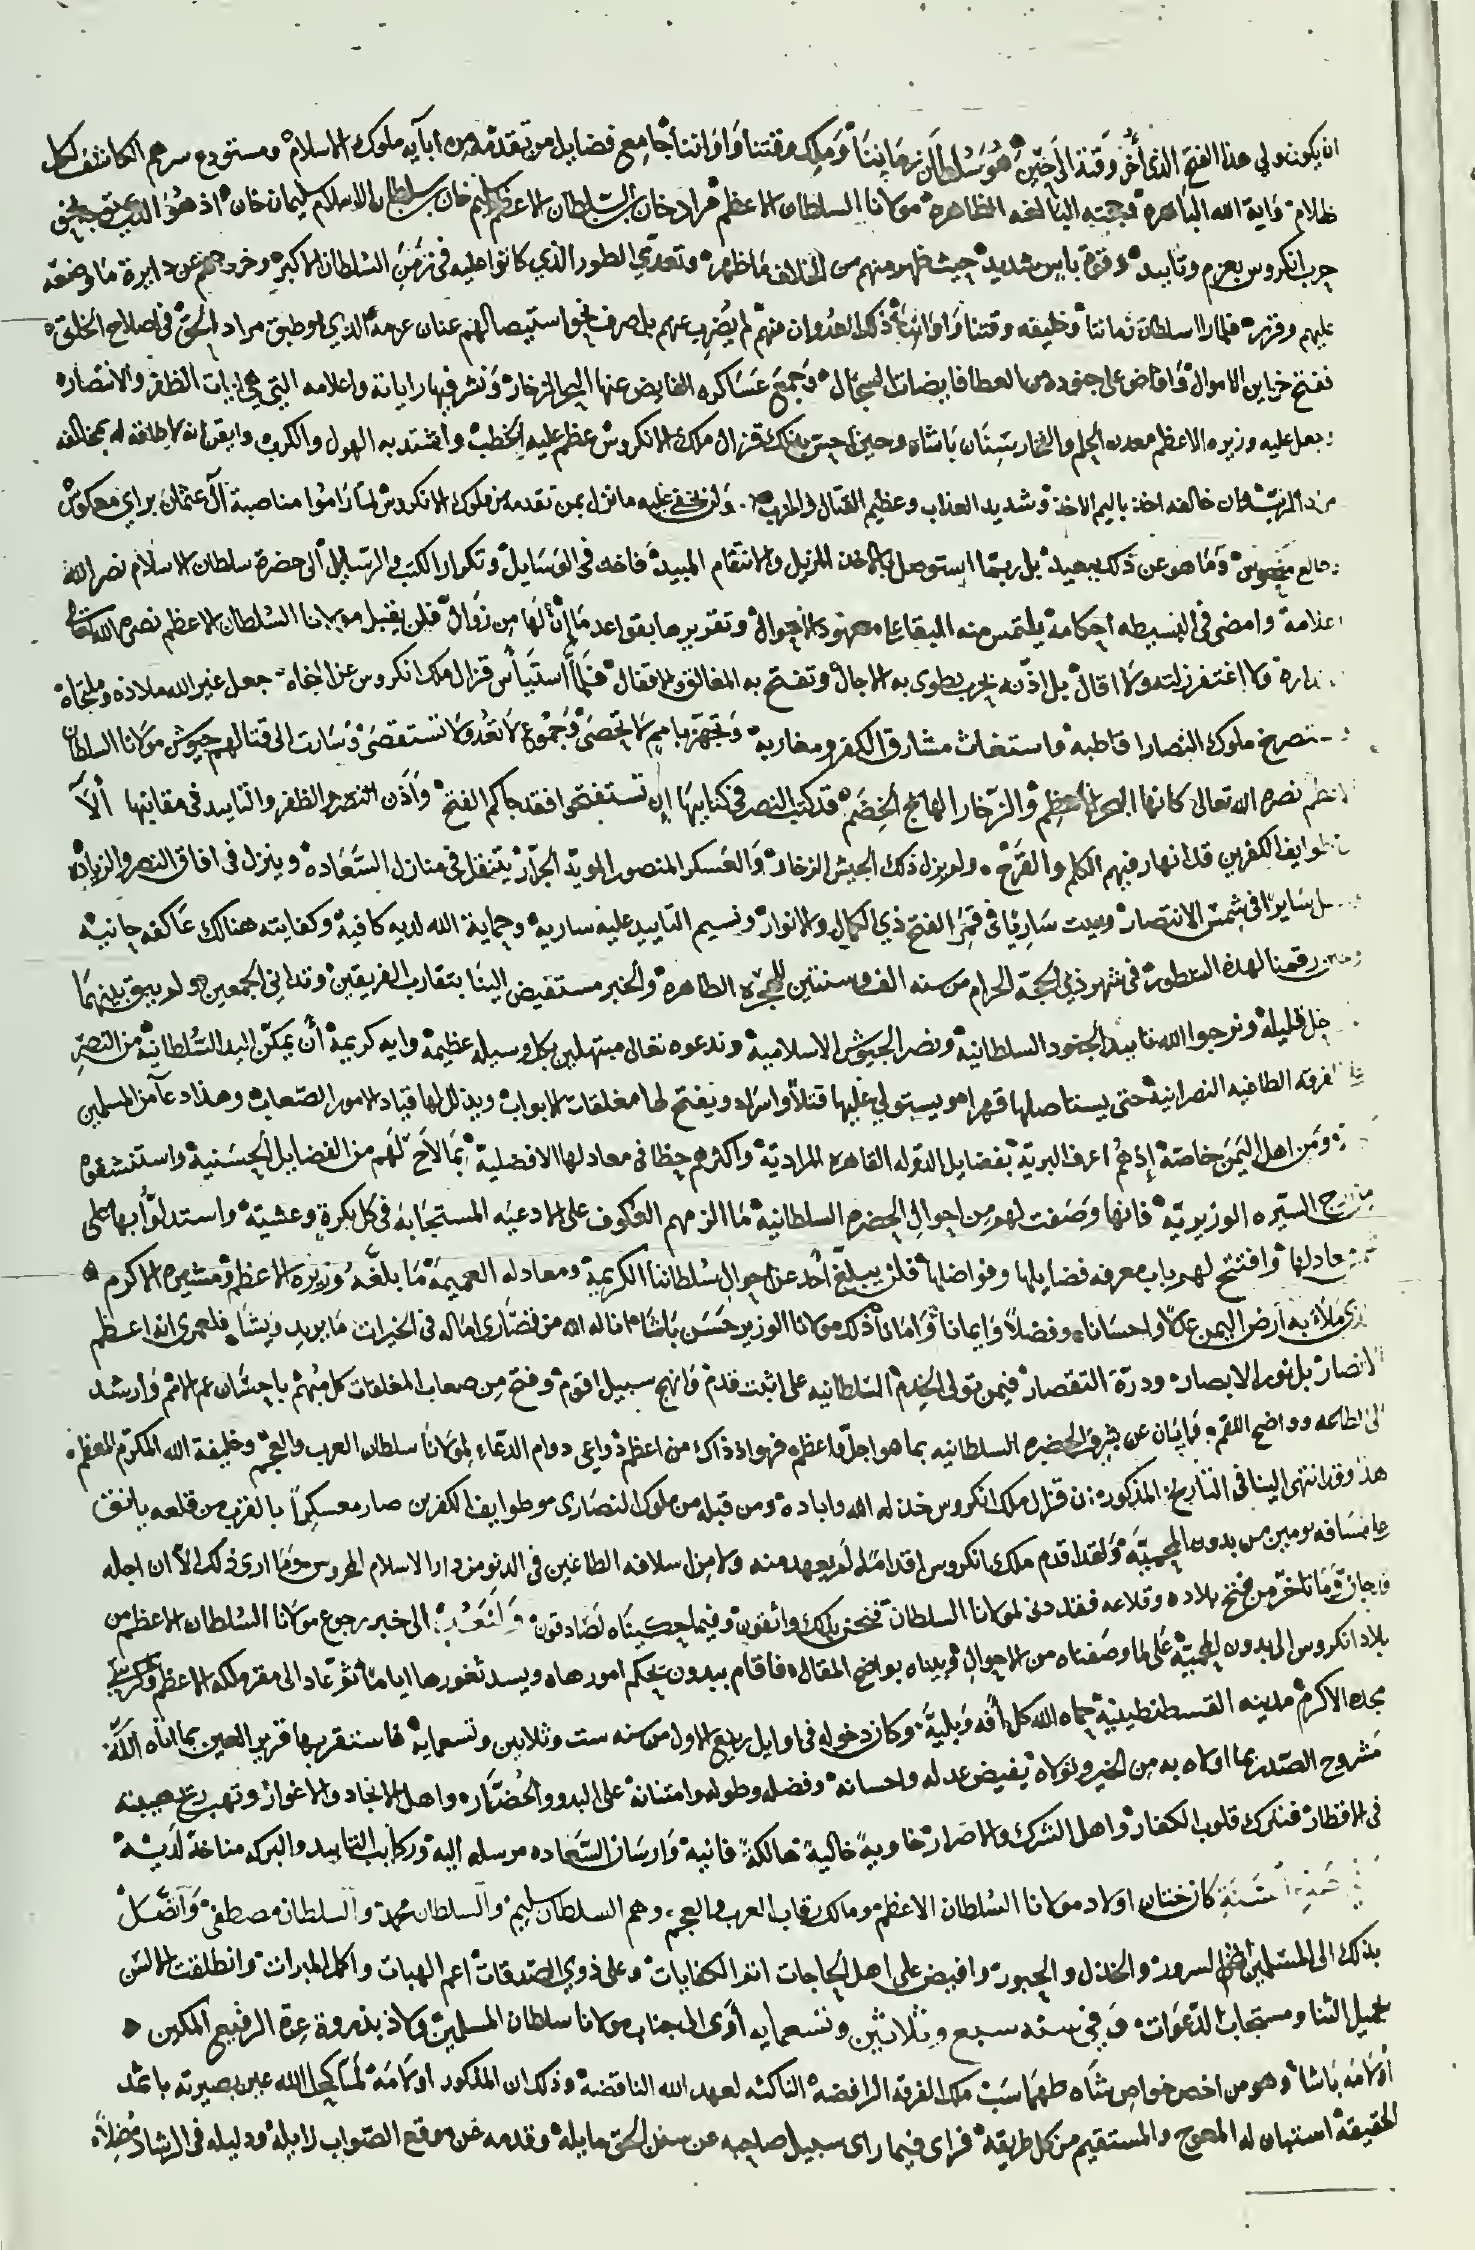 ان يكون ولي هذا الفتح الذي أخر وقته الى حين هو سلطان زماننا وملك وقتنا واواننا جامع فضايل من تقدمه من آبايه ملوك الاسلام ومستودع سرهم الكاشف لكل
ظلام وآية الله الباهرة وحجته البالغه الظاهرة مولانا السلطان الاعظم مراد خان بن السلطان الاعظم سليم خان بن سلطان الاسلام سليمان خان اذ هو الذي
حرب انكروس بعزم وتاييد وقوة باس شديد حيث ظهر منهم من الخلاف ما ظهر وتعدي الطور الذي كانوا عليه في زمن السلطان الاكبر وخروجهم عن دايرة ما وضعه
عليهم وقرره فلما راا سلطان زماننا وخليفه وقتنا واواننا ذلك العدوان منهم لم يضرب عنهم بل صرف نحو استيصالهم عنان عزمه الذي هو طبق مراد الحق في اصلاح الخلق
ففتح خزاين الاموال وافاض على جنوده من العطا فايضات السجال وجمع عساكره الفايض عنها اليم الزخار ونشر فيها راياته واعلامه التي هي ايات الظفر والانتصار
وجعل عليه وزيره الاعظم معدن الحلم والفخار سنان باشاه وحين احس بذلك قزال ملك الانكروس عظم عليه الخطب واشتد به الهول والكرب وايقن انه لا طاقه له بمخالفه
خالفه اخذ باليم الاخذ وشديد العذاب وعظيم القتال والحرب ولن يخفى عليه ما نزل بمن تقدمه من ملوك الانكروس لما راموا مناصبة آل عثمان براي معكوس
وطالع منحوس وما هو عن ذلك ببعيد بل ربما استوصل بالاخذ المزيل والانتقام المبيد فاخذ في الوسايل وتكرار الكتب والرسايل الى حضرة سلطان الاسلام نصر الله
اعلامه وامضى في البسيطه احكامه يلتمس منه البقا على معهود الاحوال وتقريرها بقواعد ما ان لها من زوال فلن يقبل مولانا السلطان الاعظم نصره الله تعالى
ولا اغتفر زلته ولا اقال بل اذنه بحرب يطوى به الاجال وتفتح به المغالق والاقفال فلما استياس قزال ملك انكروس عن النجاه جعل غير الله ملاذه وملجاه
واستصرخ ملوك النصارا قاطبه واستغاث مشارق الكفر ومغاربه وتجهز بامم لا تحصى وجموع لا تعد ولا تستقصى وسارت الى قتالهم جيوش مولانا السلطان
الاعظم نصره الله تعالى كانها البحر الاعظم والزخار الهايج الخضم قد كتب النصر في كتايبها ان تستفتحوا فقد جاكم الفتح واذن النصر والظفر والتاييد في مقانبها ألا
طوايف الكافرين قد انهار فيهم الكلم والقرح ولم يزل ذلك الجيش الزخار والعسكر المنصور المويد الجرار يتنقل في منازل السعاده وينزل في افاق النصر والزياده
سايرا في شمس الانتصار ويبيت ساريا في قمر الفتح ذي الكمال والانوار ونسيم التاييد عليه ساريه وحماية الله لديه كافيه وكفايته هنالك عاكفه حانيه
رقمنا لهذه السطور في شهر ذي الحجة الحرام من سنه الف وسنتين للهجره الطاهرة والخبر مستفيض الينا بتقارب الفريقين وتداني الجمعين ولم يبق بينهما
قليلة ونرجوا الله تاييد الجنود السلطانيه ونصر الجيوش الاسلامية وندعوه تعالى مبتهلين بكل وسيله عظيمة وايه كريمة أن يمكن اليد السلطانيه من النصر
الفرقه الطاغيه النصرانية حتى يستاصلها قهرا ويستولي عليها قتلا واسرا ويفتح لها مغلقات الابواب ويذلل لها قياد الامور الصعاب وهذا دعآ من المسلمين
ومن اهل اليمن خاصة إذ هم اعرف البرية بفضايل الدوله القاهره المراديه واكثرهم حظا في معادلها الافضلية بما لاح لهم من الفضايل الحسنية واستنشقوه
السيره الوزيريه فانها وصفت لهم من احوال الحضره السلطانيه ما الزمهم العكوف على الادعيه المستجابة في كل بكرة وعشية واستدلوا بها على
معادلها وافتتح لهم باب معرفه فضايلها وفواضلها فلن يبلغ احد عن احوال سلطاننا الكريمة ومعادله العميمة ما بلغه وزيره الاعظم ومشيره الاكرم
الذي ملاء به أرض اليمن عدلا واحسانا وفضلا وايمانا وامانا ذلك مولانا الوزير حسن باشا اناله الله من قصارى اماله في الخيرات ما يريد ويشاء فلعمري انه اعظم
الانصار بل نور الابصار ودرة التقصار فيمن تولى الخدم السلطانيه على اثبت قدم وانهج سبيل اقوم وفتح من صعاب المغلقات كل مبهم باحسان عم الامم وارشد
الى الطاعه وواضح اللقم وابان عن شرف الحضره السلطانيه بما هو اجل واعظم فهو اذ ذاك من اعظم دواعي دوام الدعاء لمولانا سلطان العرب والعجم وخليفة الله المكرم المعظم
هذا وقد انتهى الينا في التاريخ المذكور ان قزال ملك انكروس خذله الله واباده ومن قبله من ملوك النصارى وطوايف الكفرين صار معسكرا بالقرب من قلعه يانق
على مسافه يومين من بدون المحمية ولقد اقدم ملك انكروس اقداما لم يعهد منه ولا من اسلافه الطاغين في الدنو من دار الاسلام المحروس وما ارى ذلك الا ان اجله
قد حان وما تاخر من فتح بلاده وقلاعه فقد دنى لمولانا السلطان فنحن بذلك واثقون وفيما حكيناه لصادقون ولنعد الى خبر رجوع مولانا السلطان الاعظم من
بلاد انكروس الى بدون المحمية على ما وصفناه من الاحوال وبيناه بواضح المقال فاقام ببدون يحكم امورها ويسد ثغورها اياما ثم عاد الى مقر ملكه الاعظم وكرسي
مجده الاكرم مدينه القسطنطينية حماه الله كل افه وبلية وكان دخوله في اوايل ربيع الاول من سنه ست وثلاثين وتسعمايه فاستقر بها قرير العين بما اتاه الله
مشروح الصدر بما اولاه به من الخير ووالاه يفيض عدله واحسانه وفضله وطوله وامتنانه على البدو والحضار واهل الانجاد والاغوار وتهب ريح هيبته
في الاقطار فتترك قلوب الكفار واهل الشرك والاصرار خاوية خالية هالكة فانيه وارسان السعاده مرسله اليه وركايب التاييد والبركه مناخة لديه
كان ختان اولاد مولانا السلطان الاعظم ومالك رقاب العرب والعجم وهم السلطان سليم والسلطان محمد والسلطان مصطفى واتصل
بذلك الى المسلمين السرور والجذل والحبور وافيض على اهل الحاجات اتم الكفايات وعلى ذوي الصدقات اعم الهبات واكمل المبرات وانطلقت الالسن
بجميل الثنا ومستجاب الدعوات وفي سنه سبع وثلاثين وتسعمايه أوى الى جناب مولانا سلطان المسلمين ولاذ بذروة عزه الرفيع المكين
أولامه باشا وهو من اخص خواص شاه طهماسب ملك الفرقه الرافضه الناكثه لعهد الله الناقضة وذلك ان المذكور اولامة لما كحل الله عين بصيرته باثمد
الحقيقة استبان له المعوج والمستقيم من كل طريقه فراى فيما راى سبيل صاحبه عن سنن الحق مايله وقدمه عن موقع الصواب زايله ودليله في الرشاد مضلا